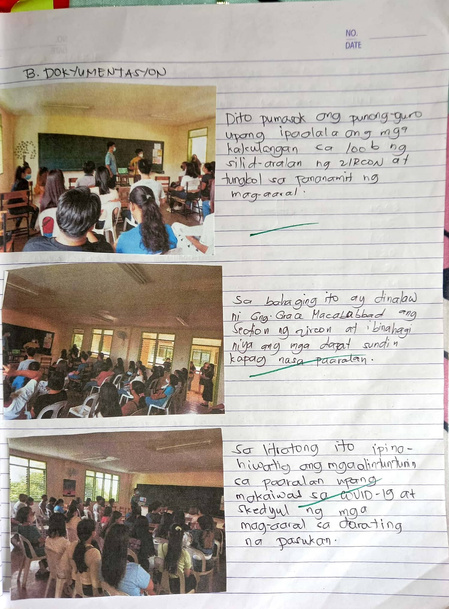 NO.
DATE
B. DOKYUMENTASYON
Dito pumasok ang punong-guro
upang ipaalala ang mga
kakulangan sa loob ng
silid-aralan ng ZIRCON at
tungkol sa pananamit ng
mag-aaral.
Sa bahaging ito ay dinalaw
ni Gng. Grace Macalabbad ang
Section ng zircon at ibinahagi
niya ang mga dapat sundin
kapag nasa paaralan.
Sa litratong ito ipina-
hiwatig ang mga alintuntunin
sa paaralan upang
makaiwas sa COVID-19 at
skedyul ng mga
mag-aaral sa darating
na pasukan.